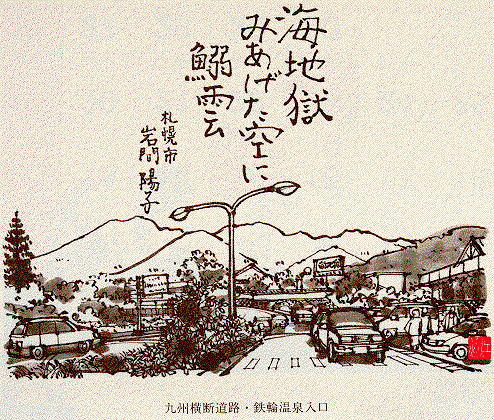 海地獄
みあげた空に
鰯雲
札幌市
岩間陽子
九州横断道路・鉄輪温泉入口